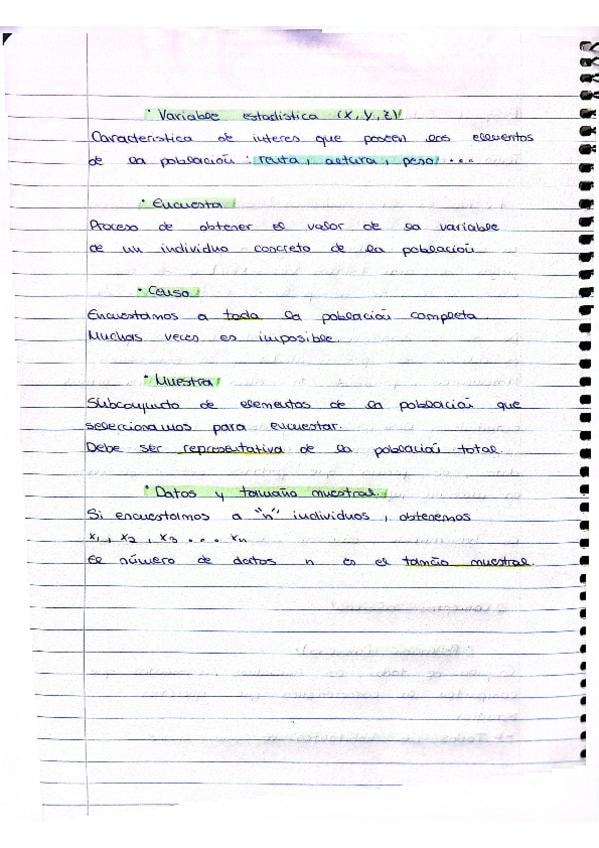 · Variable estadística (X, Y, Z)
Característica de interes que poseen los elementos
de la población : renta, altura, peso ...
· Encuesta
Proceso de obtener el valor de la variable
de un individuo concreto de la población
· Censo
Encuestamos a toda la población completa
Muchas veces es imposible.
· Muestra
Subconjunto de elementos de la población que
seleccionamos para encuestar.
Debe ser representativa de la población total.
· Datos y tamaño muestral.
Si encuestamos a "n" individuos, obtenemos
x₁, x₂, x₃ ... xn
El número de datos n es el tamaño muestral.